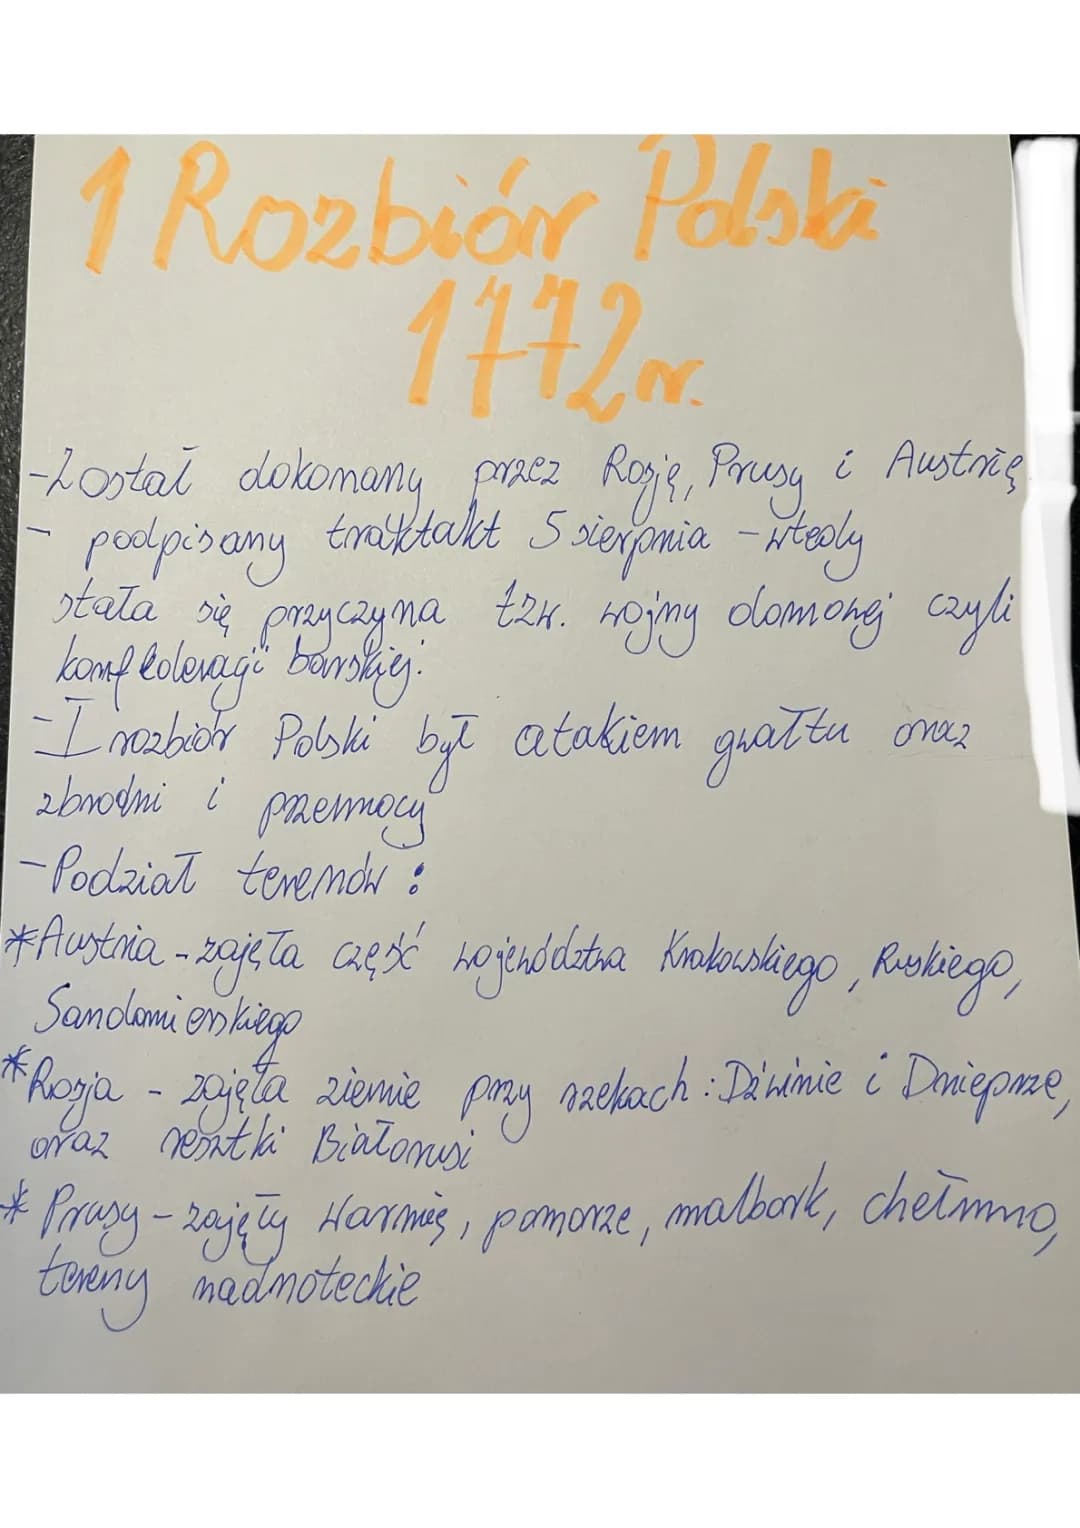 1 Rozbiór Polski
1772r.
-Został dokonany przez Rosję, Prusy i Austrię
- podpisany traktakt 5 sierpnia - wtedy
stała się przyczyna tzw. wojny domowej czyli
konfederagii barskiej.
- I rozbiór Polski był atakiem gwałtu oraz
zbrodni i przemocy
- Podział terenów :
*Austria - zajęła część województwa Krakowskiego, Ruskiego,
Sandomierskiego
*Rosja - zajęła ziemie przy rzekach : Dźwinie i Dnieprze,
oraz resztki Białorusi
* Prusy - zajęły Warmię, pomorze, malbork, chełmno,
tereny nadnoteckie